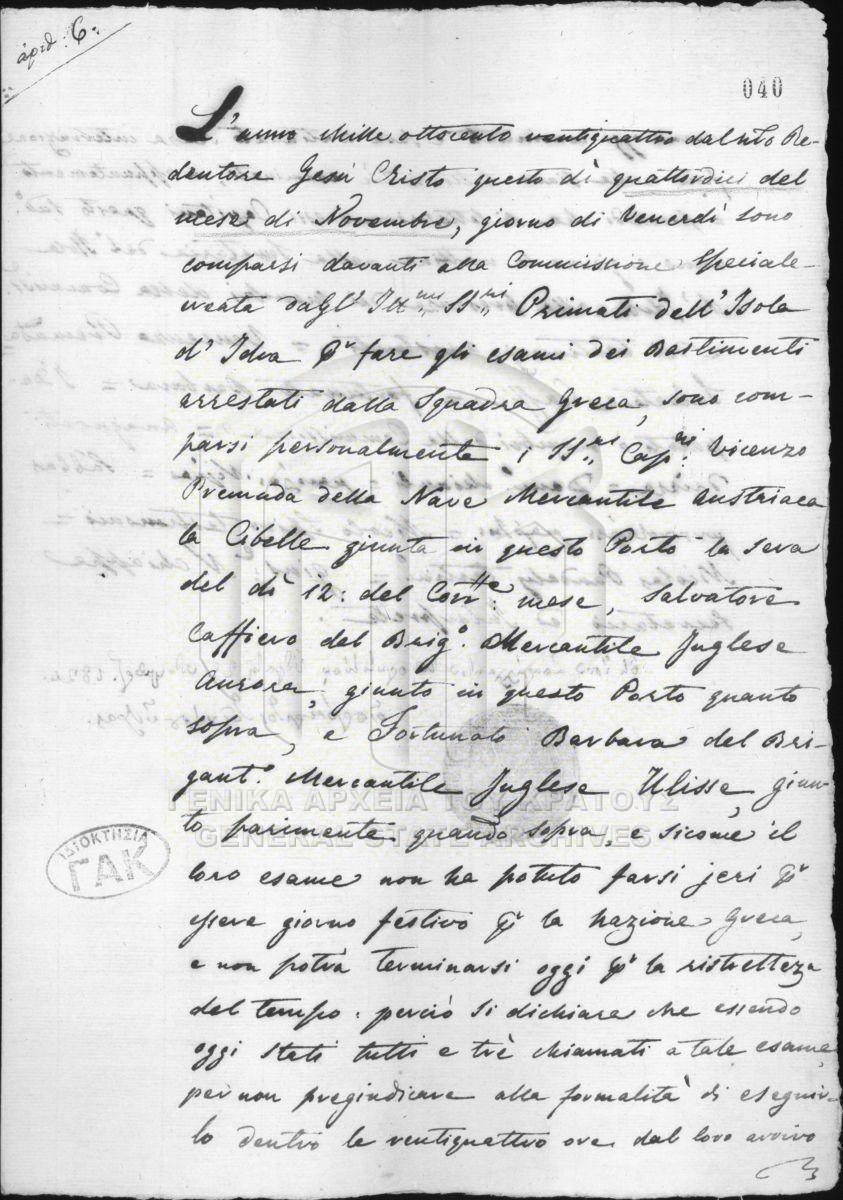 ἀριθ: 6:
040
L'anno Mille ottocento ventiquattro dal nro Re-
dentore Gesú Cristo questo dì quattordici del
mese di Novembre, giorno di Venerdì sono
comparsi davanti alla Commissione Speciale
creata dagl' Ill.mi SS.ri Primati dell' Isola
d'Idra pr fare gli esami dei Bastimenti
arrestati dalla Squadra Greca, sono com-
parsi personalmente i SS.ri Cap.ni Vicenzo
Premuda della Nave Mercantile Austriaca
la Cibelle giunta in questo Porto la sera
del dì 12: del Corr.te: mese, Salvatore
Caffiero del Brig.o Mercantile Inglese
Aurora, giunto in questo Porto quanto
sopra, e Fortunato Barbara del Bri-
gant.o Mercantile Inglese Ulisse, giun-
to parimente quando sopra, e sicome il
loro esame non ha potuto farsi jeri pr
essere giorno festivo pr la Nazione Greca,
e non potrà terminarsi oggi pr la ristrettezza
del tempo: perciò si dichiara che essendo
oggi stati tutti e trè chiamati a tale esame,
per non pregiudicare alla formalità di eseguir-
lo dentro le ventiquattro ore dal loro arrivo
ΓΕΝΙΚΑ ΑΡΧΕΙΑ ΤΟΥ ΚΡΑΤΟΥΣ
GENERAL STATE ARCHIVES
ΙΔΙΟΚΤΗΣΙΑ
ΓΑΚ